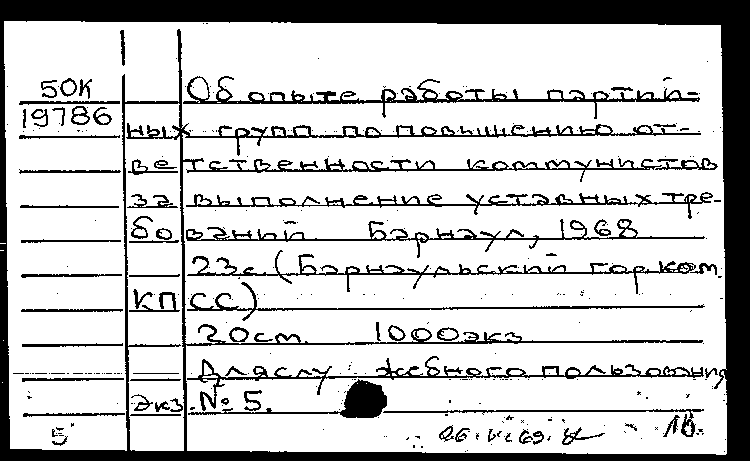 50К Об опыте работы партий-
19786 ных групп по повышению от-
ветственности коммунистов
за выполнение уставных тре-
бований Барнаул, 1968
23с. (Барнаульский горком
КПСС)
20см. 1000экз
Для служебного пользования
Экз. № 5.
5